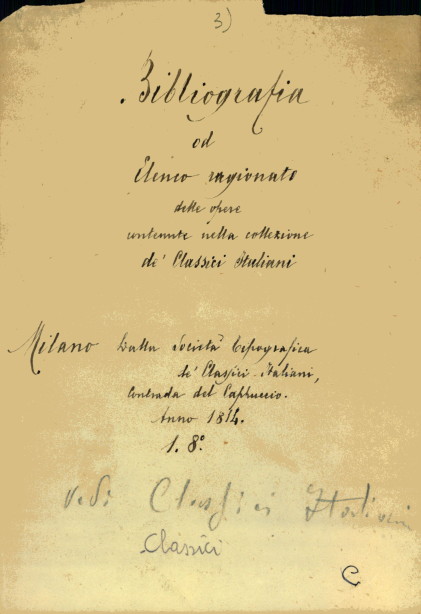 3)
Bibliografia
od
Elenco ragionato
delle opere
contenute nella collezione
de' Classici Italiani
Milano Dalla Società Tipografica
de' Classici Italiani,
Contrada del Cappuccio.
Anno 1814.
1. 8º
vedi Classici Italiani
Classici
C